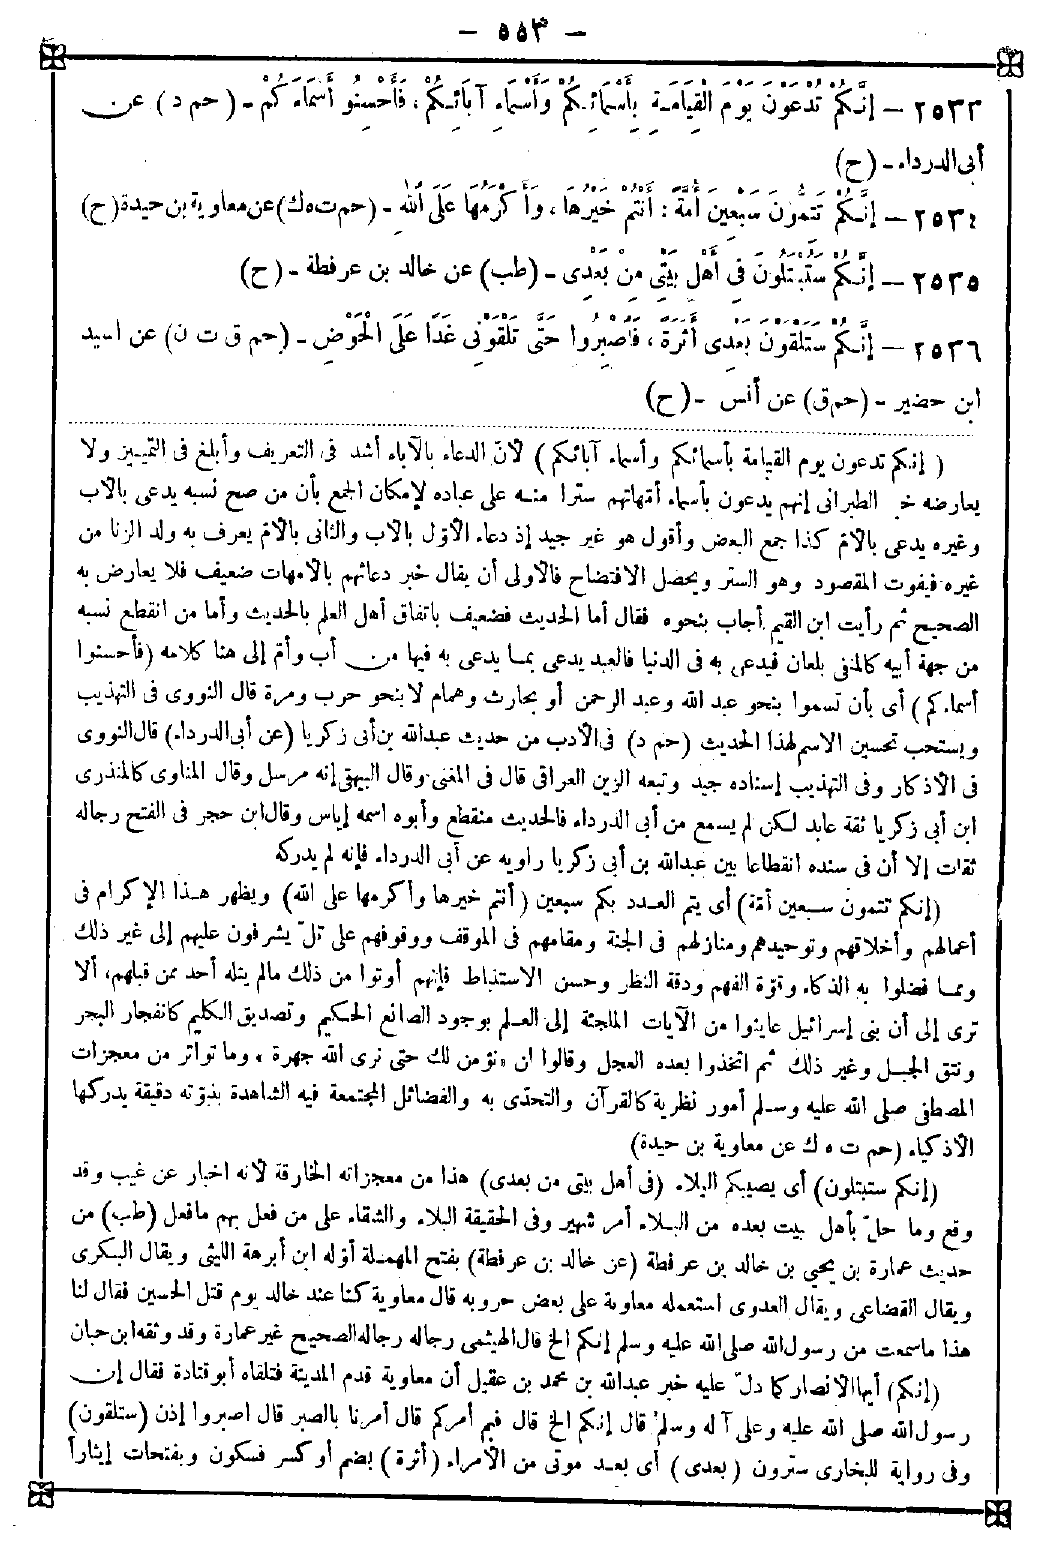 – ٥٥٣ –
٢٥٣٣ – إِنَّكُمْ تُدْعَوْنَ يَوْمَ الْقِيَامَةِ بِأَسْمَائِكُمْ وَأَسْمَاءِ آبَائِكُمْ، فَأَحْسِنُوا أَسْمَاءَكُمْ – (حم د) عن
أبى الدرداء – (ح)
٢٥٣٤ – إِنَّكُمْ تَتِمُّونَ سَبْعِينَ أُمَّةً: أَنْتُمْ خَيْرُهَا، وَأَكْرَمُهَا عَلَى اللهِ – (حم ت ه ك) عن معاوية بن حيدة (ح)
٢٥٣٥ – إِنَّكُمْ سَتُبْتَلُونَ فِى أَهْلِ بَيْتِى مِنْ بَعْدِى – (طب) عن خالد بن عرفطة – (ح)
٢٥٣٦ – إِنَّكُمْ سَتَلْقَوْنَ بَعْدِى أَثَرَةً، فَاصْبِرُوا حَتَّى تَلْقَوْنِى غَدًا عَلَى الْحَوْضِ – (حم ق ت ن) عن اسيد
ابن حضير – (حم ق) عن أنس – (ح)
(إنكم تدعون يوم القيامة بأسمائكم وأسماء آبائكم) لأنّ الدعاء بالآباء أشد فى التعريف وأبلغ فى التمييز ولا
يعارضه خبر الطبرانى إنهم يدعون بأسماء أمّهاتهم سترا منه على عباده لإمكان الجمع بأن من صح نسبه يدعى بالأب
وغيره يدعى بالأمّ كذا جمع البعض وأقول هو غير جيد إذ دعاء الأوّل بالأب والثانى بالأم يعرف به ولد الزنا من
غيره فيفوت المقصود وهو الستر ويحصل الافتضاح فالأولى أن يقال خبر دعائهم بالأمهات ضعيف فلا يعارض به
الصحيح ثم رأيت ابن القيم أجاب بنحوه فقال أما الحديث فضعيف باتفاق أهل العلم بالحديث وأما من انقطع نسبه
من جهة أبيه كالمنفى بلعان فيدعى به فى الدنيا فالعبد يدعى بما يدعى به فيها من أب وأمّ إلى هنا كلامه (فأحسنوا
أسماءكم) أى بأن تسموا بنحو عبد الله وعبد الرحمن أو بحارث وهمام لا بنحو حرب ومرة قال النووى فى التهذيب
ويستحب تحسين الاسم لهذا الحديث (حم د) فى الأدب من حديث عبدالله بن أبى زكريا (عن أبى الدرداء) قال النووى
فى الأذكار وفى التهذيب إسناده جيد وتبعه الزين العراقى قال فى المغنى وقال البيهقى إنه مرسل وقال المناوى كالمنذرى
ابن أبى زكريا ثقة عابد لكن لم يسمع من أبى الدرداء فالحديث منقطع وأبوه اسمه إياس وقال ابن حجر فى الفتح رجاله
ثقات إلا أن فى سنده انقطاعا بين عبدالله بن أبى زكريا راويه عن أبى الدرداء فإنه لم يدركه
(إنكم تتمون سبعين أمّة) أى يتم العدد بكم سبعين (أنتم خيرها وأكرمها على الله) ويظهر هذا الإكرام فى
أعمالهم وأخلاقهم وتوحيدهم ومنازلهم فى الجنة ومقامهم فى الموقف ووقوفهم على تلّ يشرفون عليهم إلى غير ذلك
ومما فضلوا به الذكاء وقوّة الفهم ودقة النظر وحسن الاستنباط فإنهم أوتوا من ذلك مالم ينله أحد ممن قبلهم، ألا
ترى إلى أن بنى إسرائيل عاينوا من الآيات الملجئة إلى العلم بوجود الصانع الحكيم وتصديق الكليم كانفجار البحر
ونتق الجبل وغير ذلك ثم اتخذوا بعده العجل وقالوا لن «نؤمن لك حتى نرى الله جهرة» وما تواتر من معجزات
المصطفى صلى الله عليه وسلم أمور نظرية كالقرآن والتحدّى به والفضائل المجتمعة فيه الشاهدة بنبوّته دقيقة يدركها
الأذكياء (حم ت ه ك عن معاوية بن حيدة)
(إنكم ستبتلون) أى يصيبكم البلاء (فى أهل بيتى من بعدى) هذا من معجزاته الخارقة لأنه اخبار عن غيب وقد
وقع وما حلّ بأهل بيت بعده من البلاء أمر شهير وفى الحقيقة البلاء والشقاء على من فعل بهم مافعل (طب) من
حديث عمارة بن يحيى بن خالد بن عرفطة (عن خالد بن عرفطة) بفتح المهملة أوّله ابن أبرهة الليثى ويقال البكرى
ويقال القضاعى ويقال العدوى استعمله معاوية على بعض حروبه قال معاوية كنا عند خالد يوم قتل الحسين فقال لنا
هذا ماسمعت من رسول الله صلى الله عليه وسلم إنكم الخ قال الهيثمى رجاله رجاله الصحيح غير عمارة وقد وثقه ابن حبان
(إنكم) أيها الأنصار كما دلّ عليه خبر عبدالله بن محمد بن عقيل أن معاوية قدم المدينة فتلقاه أبو قتادة فقال إن
رسول الله صلى الله عليه وعلى آله وسلم قال إنكم الخ قال فبم أمركم قال أمرنا بالصبر قال اصبروا إذن (ستلقون)
وفى رواية للبخارى سترون (بعدى) أى بعد موتى من الأمراء (أثرة) بضم أو كسر فسكون وبفتحات إيثاراً